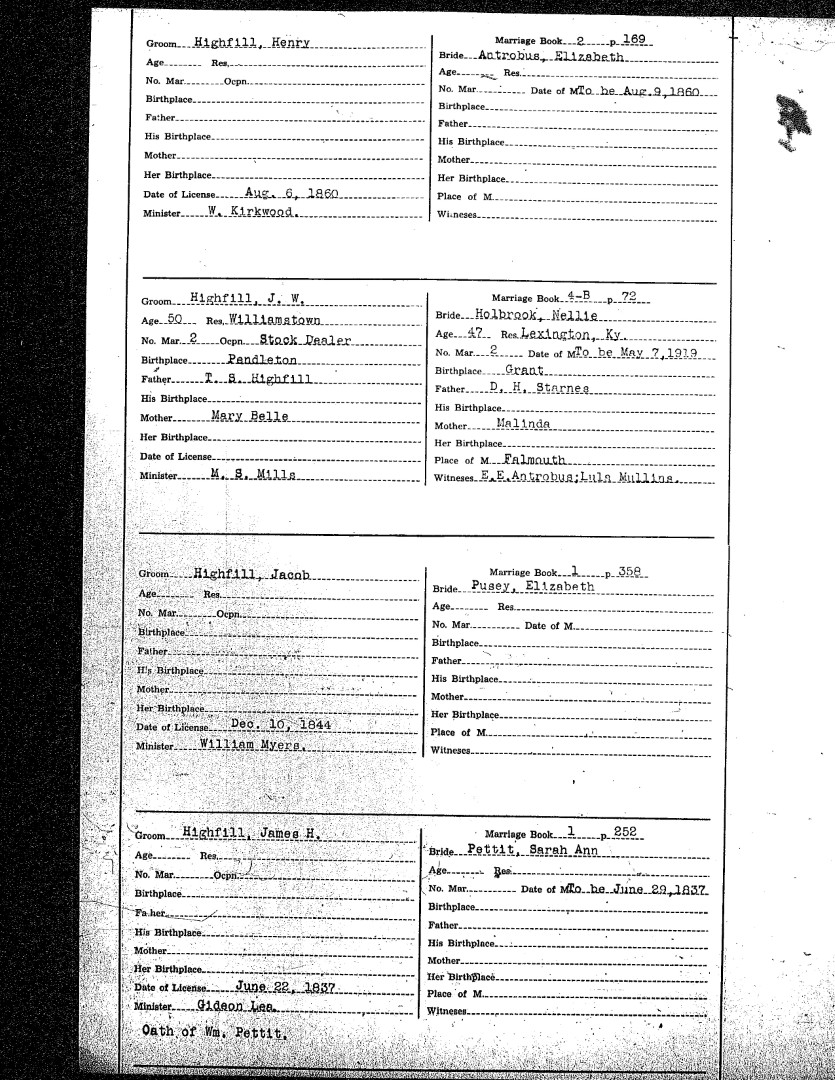 Groom Highfill, Henry
Age Res.
No. Mar. Ocpn.
Birthplace
Father
His Birthplace
Mother
Her Birthplace
Date of License Aug. 6, 1860
Minister W. Kirkwood.
Marriage Book 2 p. 169
Bride Antrobus, Elizabeth
Age Res.
No. Mar. Date of M. To be Aug.9,1860
Birthplace
Father
His Birthplace
Mother
Her Birthplace
Place of M.
Witneses
Groom Highfill, J. W.
Age 50 Res. Williamstown
No. Mar. 2 Ocpn. Stock Dealer
Birthplace Pendleton
Father T. S. Highfill
His Birthplace
Mother Mary Belle
Her Birthplace
Date of License
Minister M. S. Mills
Marriage Book 4-B p. 72
Bride Holbrook, Nellie
Age 47 Res. Lexington, Ky.
No. Mar. 2 Date of M. To be May 7,1919
Birthplace Grant
Father D. H. Starnes
His Birthplace
Mother Malinda
Her Birthplace
Place of M. Falmouth
Witneses E.E.Antrobus;Lula Mullins.
Groom Highfill, Jacob
Age Res.
No. Mar. Ocpn.
Birthplace
Father
His Birthplace
Mother
Her Birthplace
Date of License Dec. 10, 1844
Minister William Myers.
Marriage Book 1 p. 358
Bride Pusey, Elizabeth
Age Res.
No. Mar. Date of M.
Birthplace
Father
His Birthplace
Mother
Her Birthplace
Place of M.
Witneses
Groom Highfill, James H.
Age Res.
No. Mar. Ocpn.
Birthplace
Father
His Birthplace
Mother
Her Birthplace
Date of License June 22, 1837
Minister Gideon Lea.
Oath of Wm. Pettit.
Marriage Book 1 p. 252
Bride Pettit, Sarah Ann
Age Res.
No. Mar. Date of M. To be June 29,1837
Birthplace
Father
His Birthplace
Mother
Her Birthplace
Place of M.
Witneses